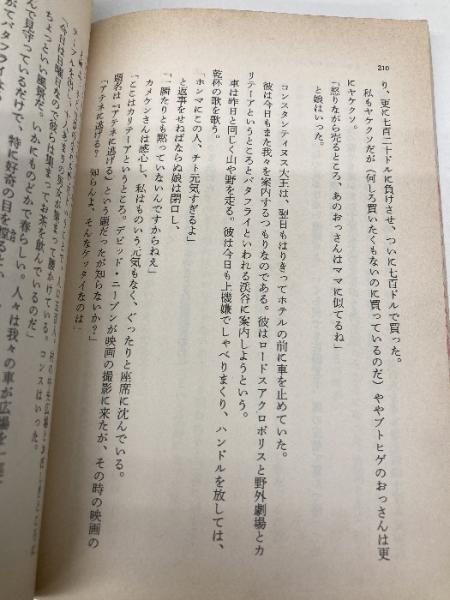 210
り、更に七百二十ドルに負けさせ、ついに七百ドルで買った。
私もヤケクソだが（何しろ買いたくもないのに買っているのだ）ややブトヒゲのおっさんは更
にヤケクソ。
「怒りながら売るところ、あのおっさんはママに似てるね」
と娘はいった。
コンスタンティヌス大王は、翌日もはりきってホテルの前に車を止めていた。
彼は今日もまた我々を案内するつもりなのである。彼はロードスアクロポリスと野外劇場とカ
リテーアというところとバタフライといわれる渓谷に案内しようという。
車は昨日と同じく山や野を走る。彼は今日も上機嫌でしゃべりまくり、ハンドルを放しては、
乾杯の歌を歌う。
「ホンマにこの人、チト元気すぎるよ」
と返事をせねばならぬ娘は閉口し、
「一瞬たりとも黙っていないんですからねえ」
カメケンさんは感心し、私はものいう元気もなく、ぐったりと座席に沈んでいる。
「ここはカリテーアというところ。デビッド・ニーブンが映画の撮影に来たが、その時の映画の
題名は『アテネに逃げる』という題だったが知らないか？」
「アテネに逃げる？　知らんよ、そんなケッタイなのは」
コンスはいった。
「今日は日曜日なので彼らは集まってお茶を飲んでいるのだ」
ちょっといい風景だ。いかにものどかで春らしい。人々は我々の車が広場を
んで見守っているだけで、特に好奇の目を
がてバタフライ